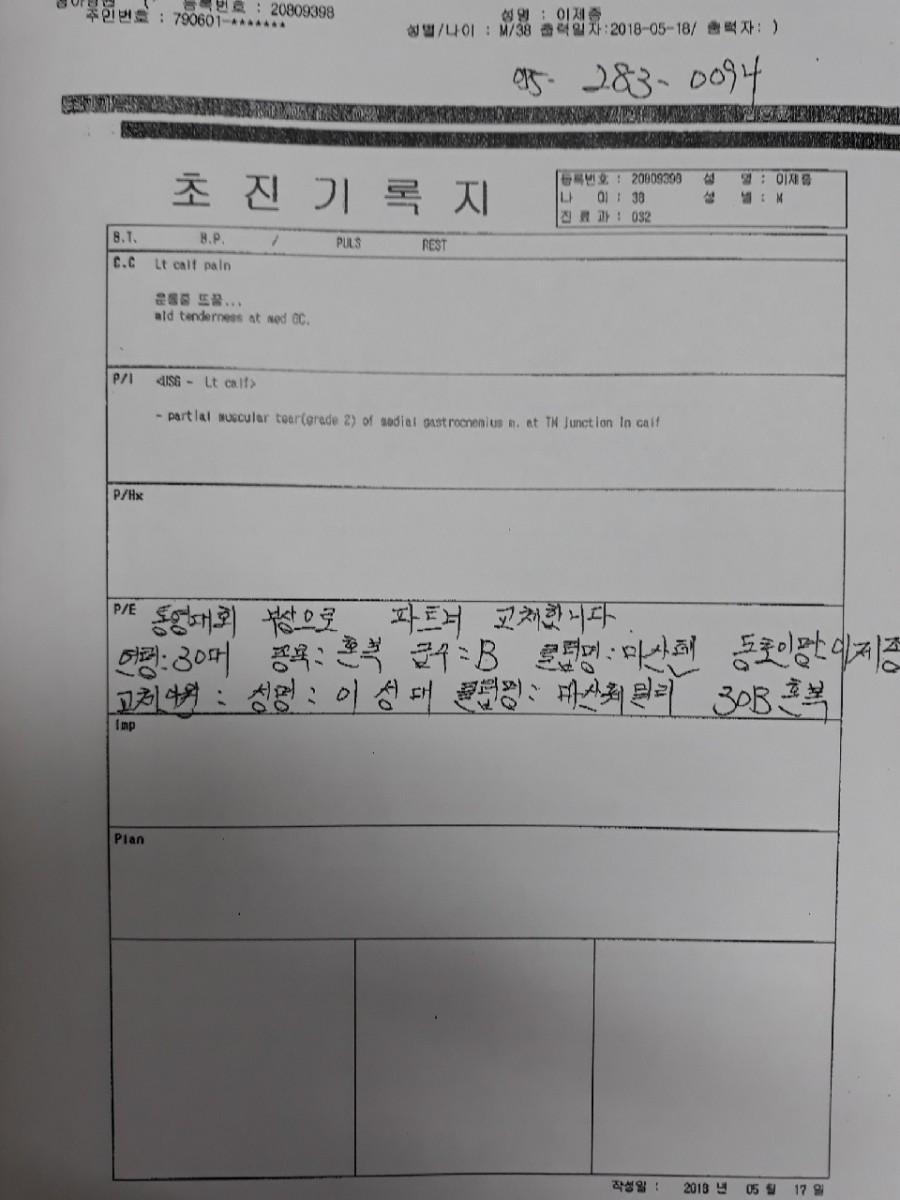 등록번호 : 20809398
주민번호 : 790601-*******
성명 : 이제종
성별/나이 : M/38 출력일자:2018-05-18/ 출력자: )
055- 283- 0094
초 진 기 록 지
등록번호 : 20809398 성 명 : 이제종
나 이 : 38 성 별 : M
진 료 과 : 032
B.T. B.P. / PULS REST
C.C Lt calf pain
운동중 뜨끔...
mld tenderness at med GC.
P/I <USG - Lt calf>
- partial muscular tear(grade 2) of medial gastrocnemius m. at TM junction in calf
P/Hx
P/E 통영대회 부상으로 파트너 교체합니다
연령: 30대 종목: 혼복 급수: B 클럽명: 마산
이제종
교체 : 성명 : 이 성 대 클럽명: 마산 30B 혼복
Imp
Plan
작성일 : 2018 년 05 월 17 일